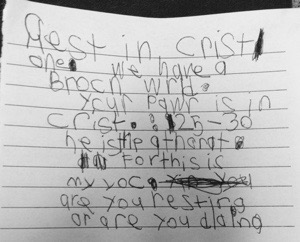 Rest in crist
one. we have a
Brocn wrld.
your Pawr is in
Crist. : 25-30
he is the athardt.
for this is
my yoc.
are you resting
or are you dloing